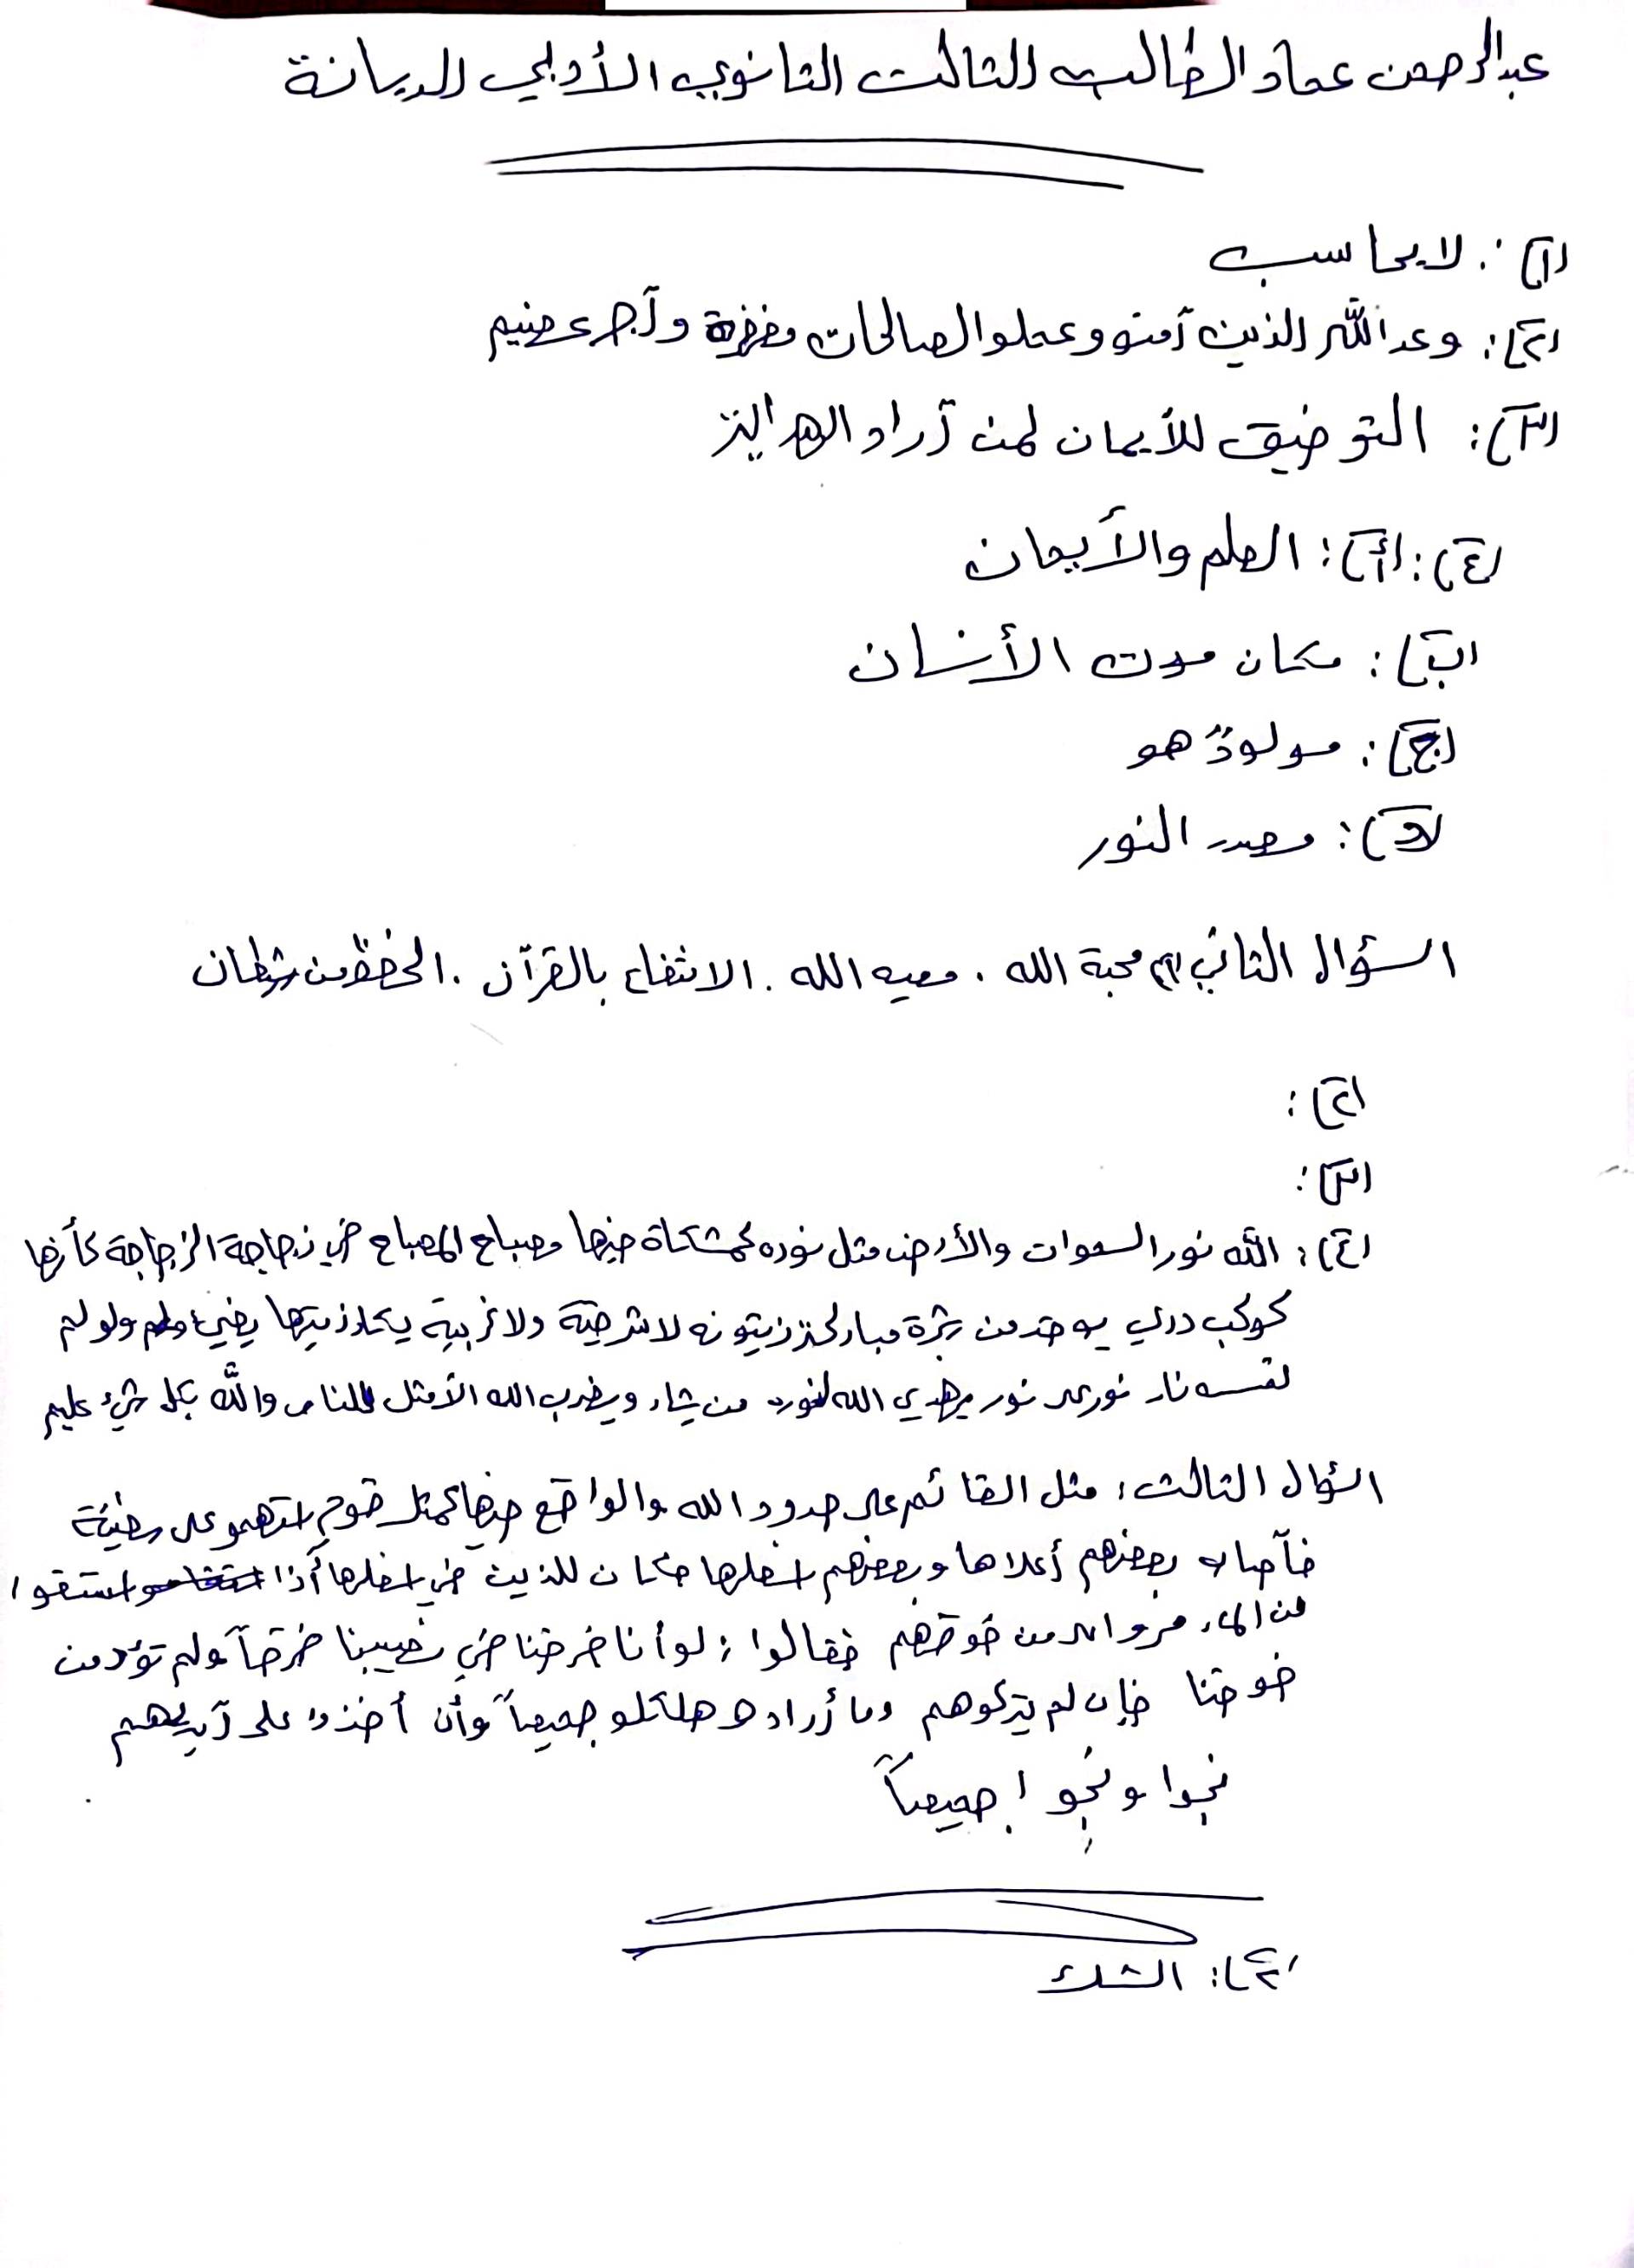 عبدالرحمن عماد الطالب الثالث الثانوي الأدبي الديانة
(١): لا يحاسب
(٢): وعد الله الذين آمنو وعملوا الصالحات مغفرة وآجر عضيم
(٣): التوفيق للأيمان لمن آراد الهداية
(٤): (أ): العلم والأيمان
(ب): مكان موت الأنسان
(ج): مولودٌ هو
(د): مصدر النور
السؤال الثاني (١) محبة الله . معيه الله . الانتفاع بالقرآن . الحفظ من شيطان
(٢):
(٣):
(٤): الله نور السموات والأرض مثل نوره كمشكاة فيها مصباح المصباح في زجاجة الزجاجة كأنها
كوكب دري يوقد من شجرة مباركة زيتونه لا شرقية ولا غربية يكاد زيتها يضيئ ولو لم
تمسسه نار نور على نور يهدي الله لنوره من يشاء ويضرب الله الأمثل للناس والله بكل شيء عليم
السؤال الثالث: مثل القائم على حدود الله والواقع فيها كمثل قوم استهمو على سفينة
فآصاب بعضهم أعلاها وبعضهم اسفلها فكان للذين في اسفلها أذا استقوا
من الماء مروا على من فوقهم فقالوا: لو أنا خرقنا في نصيبنا خرقاً ولم تؤذ من
فوقنا فإن لم يتركوهم وما أرادو هلكلو جميعاً وأن أخذوا على آيديهم
نجوا ونجوا جميعاً
(٢): الشك